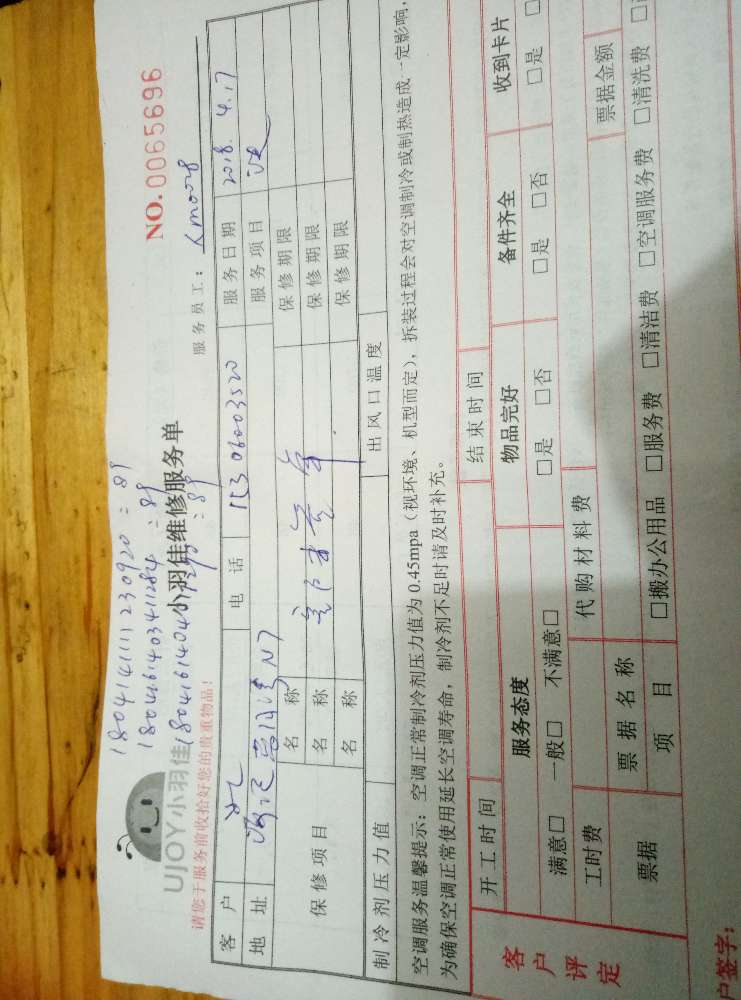 180414111230920：89
180416140341284：89
NO.0065696
UJOY小羽佳
小羽佳维修服务单
请您于服务前收拾好您的贵重物品！
服务员工：Xm0078
客户 电话 15306003520 服务日期 2018.4.17
地址 服务项目
保修项目 名称 保修期限
名称 保修期限
名称 保修期限
制冷剂压力值 出风口温度
空调服务温馨提示：空调正常制冷剂压力值为0.45mpa（视环境、机型而定），拆装过程会对空调制冷或制热造成一定影响，
为确保空调正常使用延长空调寿命，制冷剂不足时请及时补充。
客户评定 开工时间 结束时间
服务态度 物品完好 备件齐全 收到卡片
满意□ 一般□ 不满意□ □是 □否 □是 □否 □是 □
工时费 代购材料费
票据 票据名称 票据金额
项目 □搬办公用品 □服务费 □清洁费 □空调服务费 □清洗费
户签字：